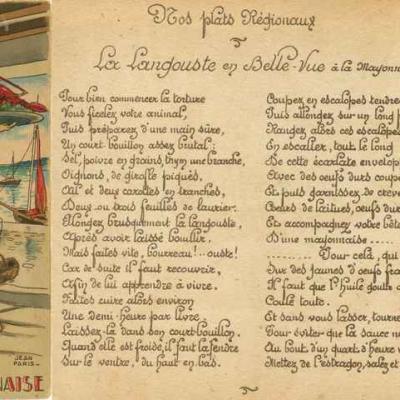 Nos plats Régionaux
La Langouste en Belle-Vue à la Mayonn
Pour bien commencer la torture
Vous ficelez votre animal,
Puis préparez d'une main sûre,
Un court bouillon assez brutal;
Sel, poivre en grains, thym une branche,
Oignons, de girofle piqués,
Ail et deux carottes en tranches,
Deux ou trois feuilles de laurier.
Allongez brusquement la langouste,
Après avoir laissé bouillir.
Mais faites vite, bourreau!...ouste!
Car de suite il faut recouvrir,
Afin de lui apprendre à vivre.
Faites cuire alors environ
Une demi-heure par livre.
Laissez-la dans son court-bouillon.
Quand elle est froide, il faut la fendre
Sur le ventre, du haut en bas.
Coupez en escalopes tendre
Puis allongez sur un long p
Rangez alors ces escalopes
En escalier, tout le long
De cette écarlate envelop
Avec des oeufs durs coupé
Et puis garnissez de creve
Coeurs de laitues, oeufs dur
Et accompagnez votre bêt
D'une mayonnaise .....
........ Pour cela, qui
Sur des jaunes d'oeufs fra
Il faut que l'huile goutte à
Coule toute.
Et sans vous lasser, tourne
Pour éviter que la sauce n
Au bout d'un quart d'heure
Mettez de l'estragon, salez et
JEAN
PARIS
NAISE